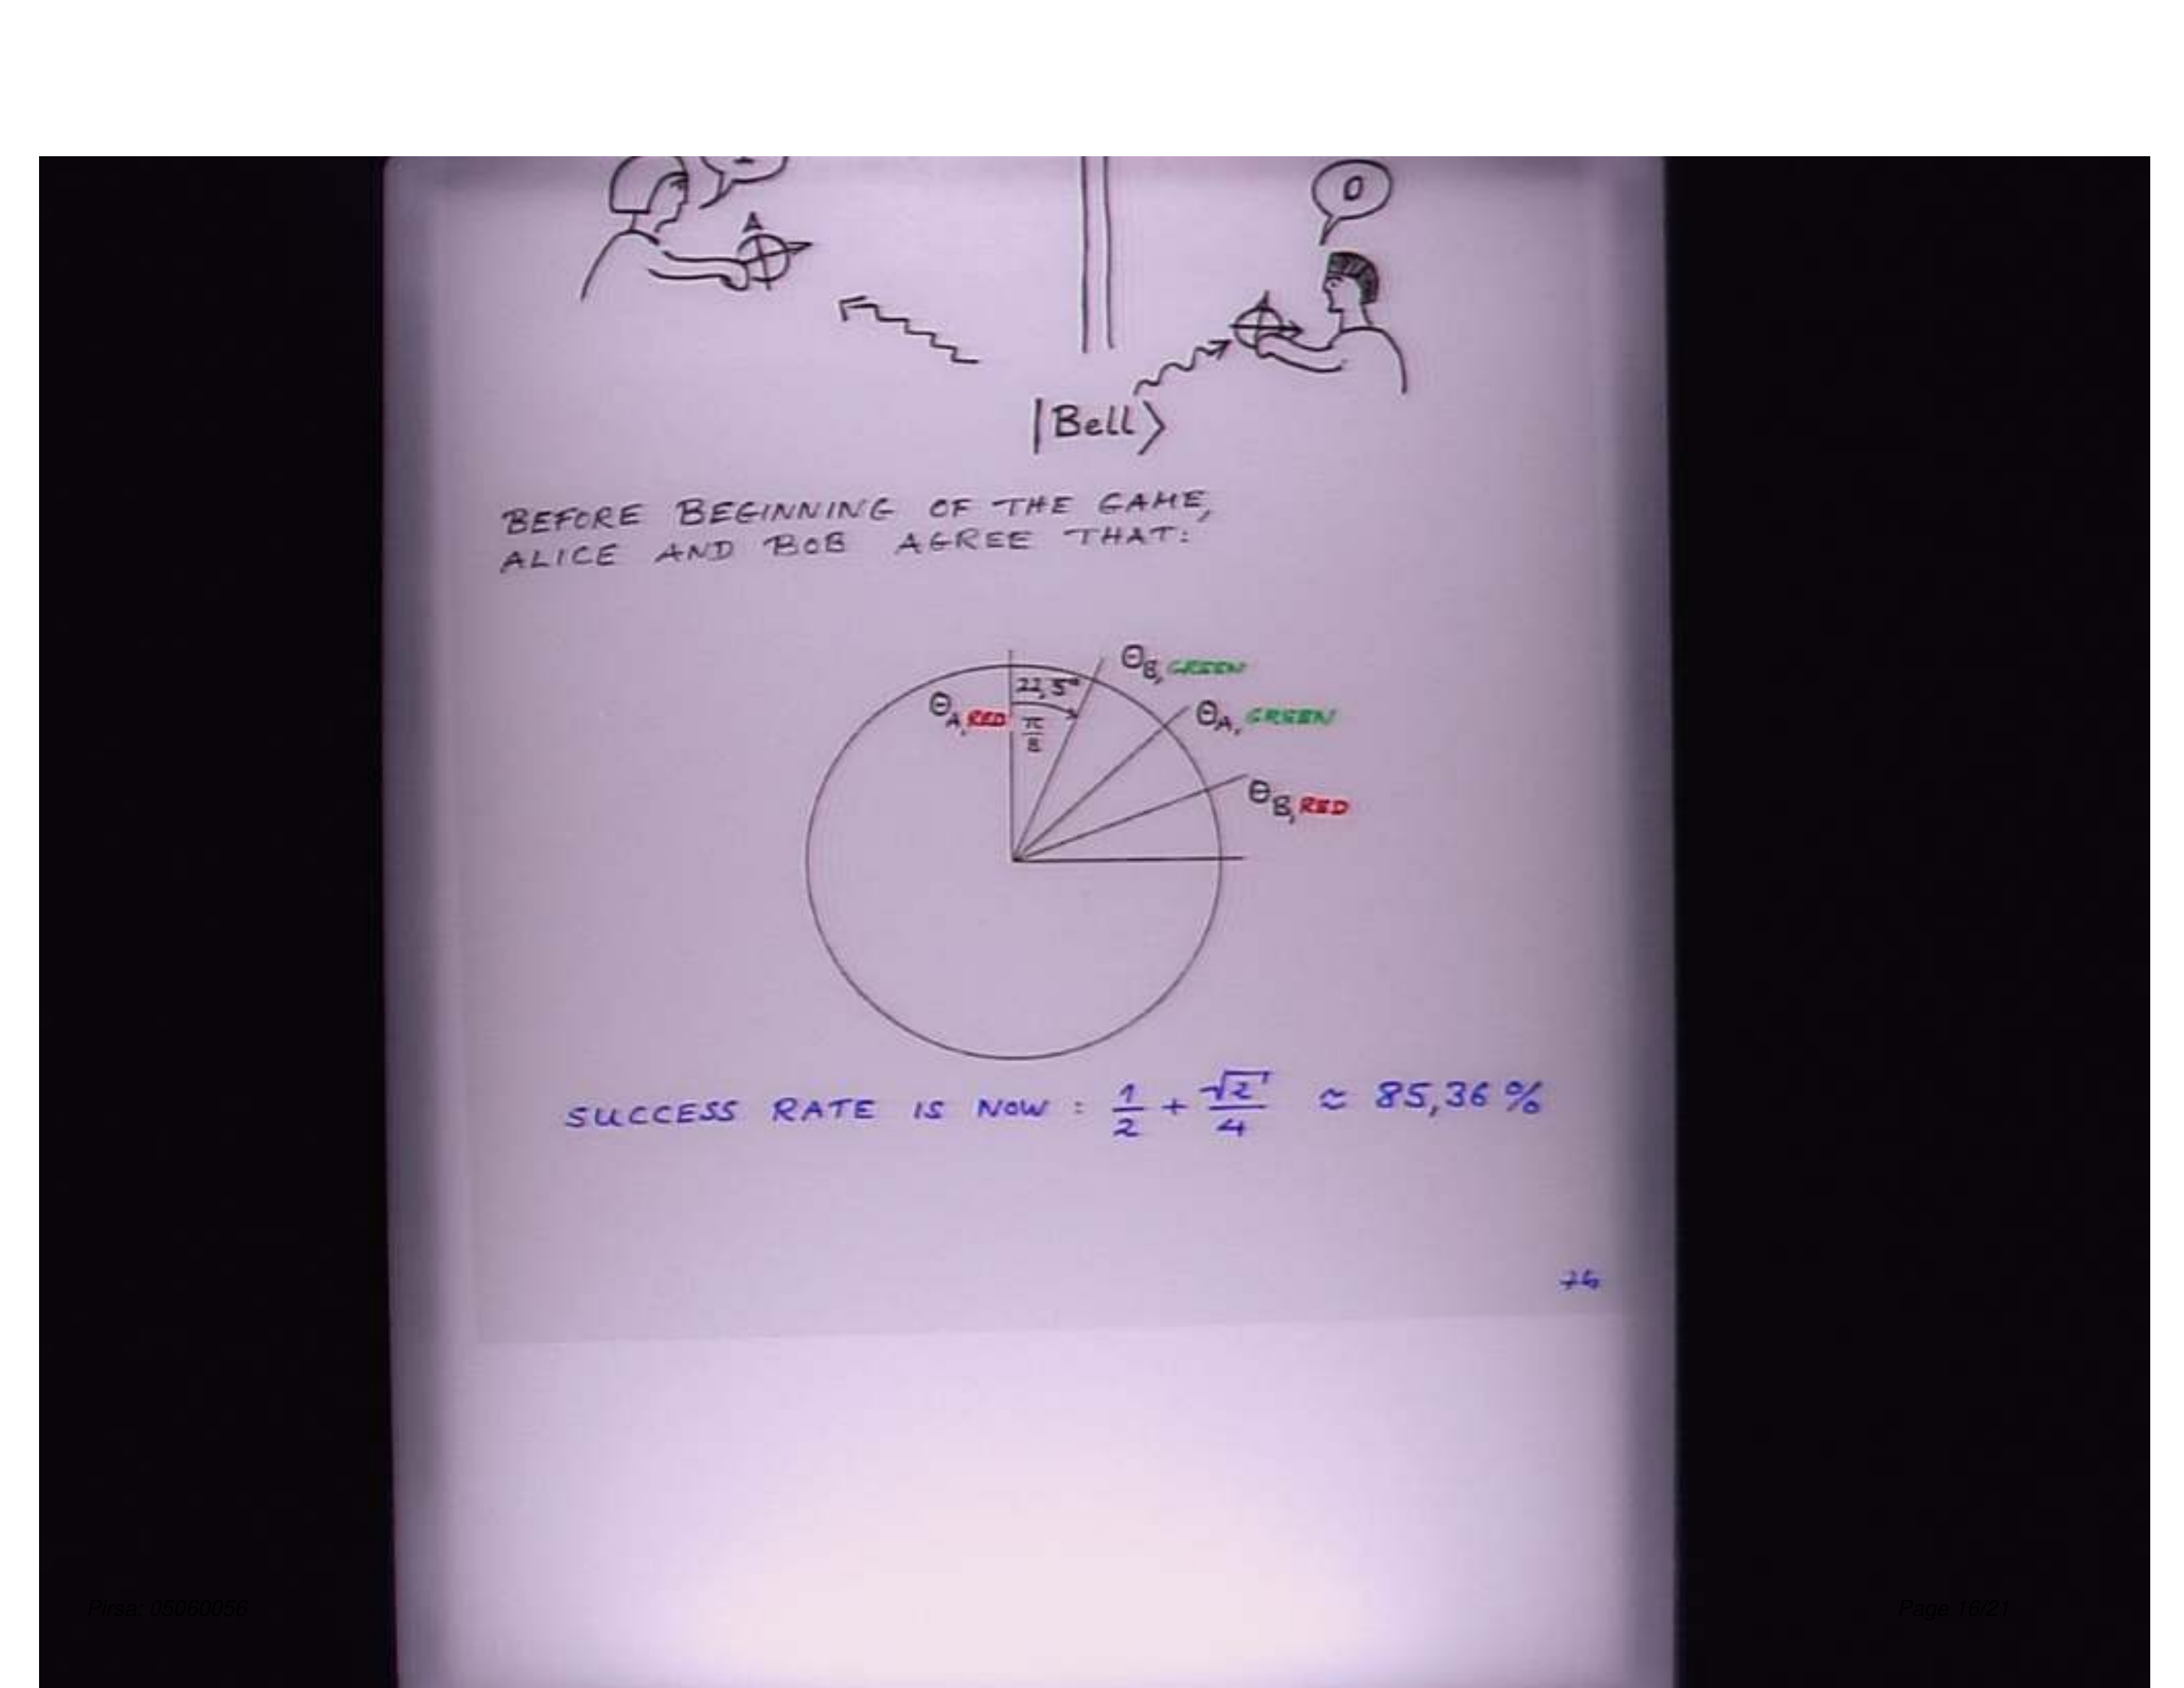 0
A
|Bell⟩
BEFORE BEGINNING OF THE GAME,
ALICE AND BOB AGREE THAT:
θB, GREEN
22,5°
θA, RED
π/8
θA, GREEN
θB, RED
SUCCESS RATE IS NOW : 1/2 + √2/4 ≈ 85,36 %
Pirsa: 05060056
Page 16/21